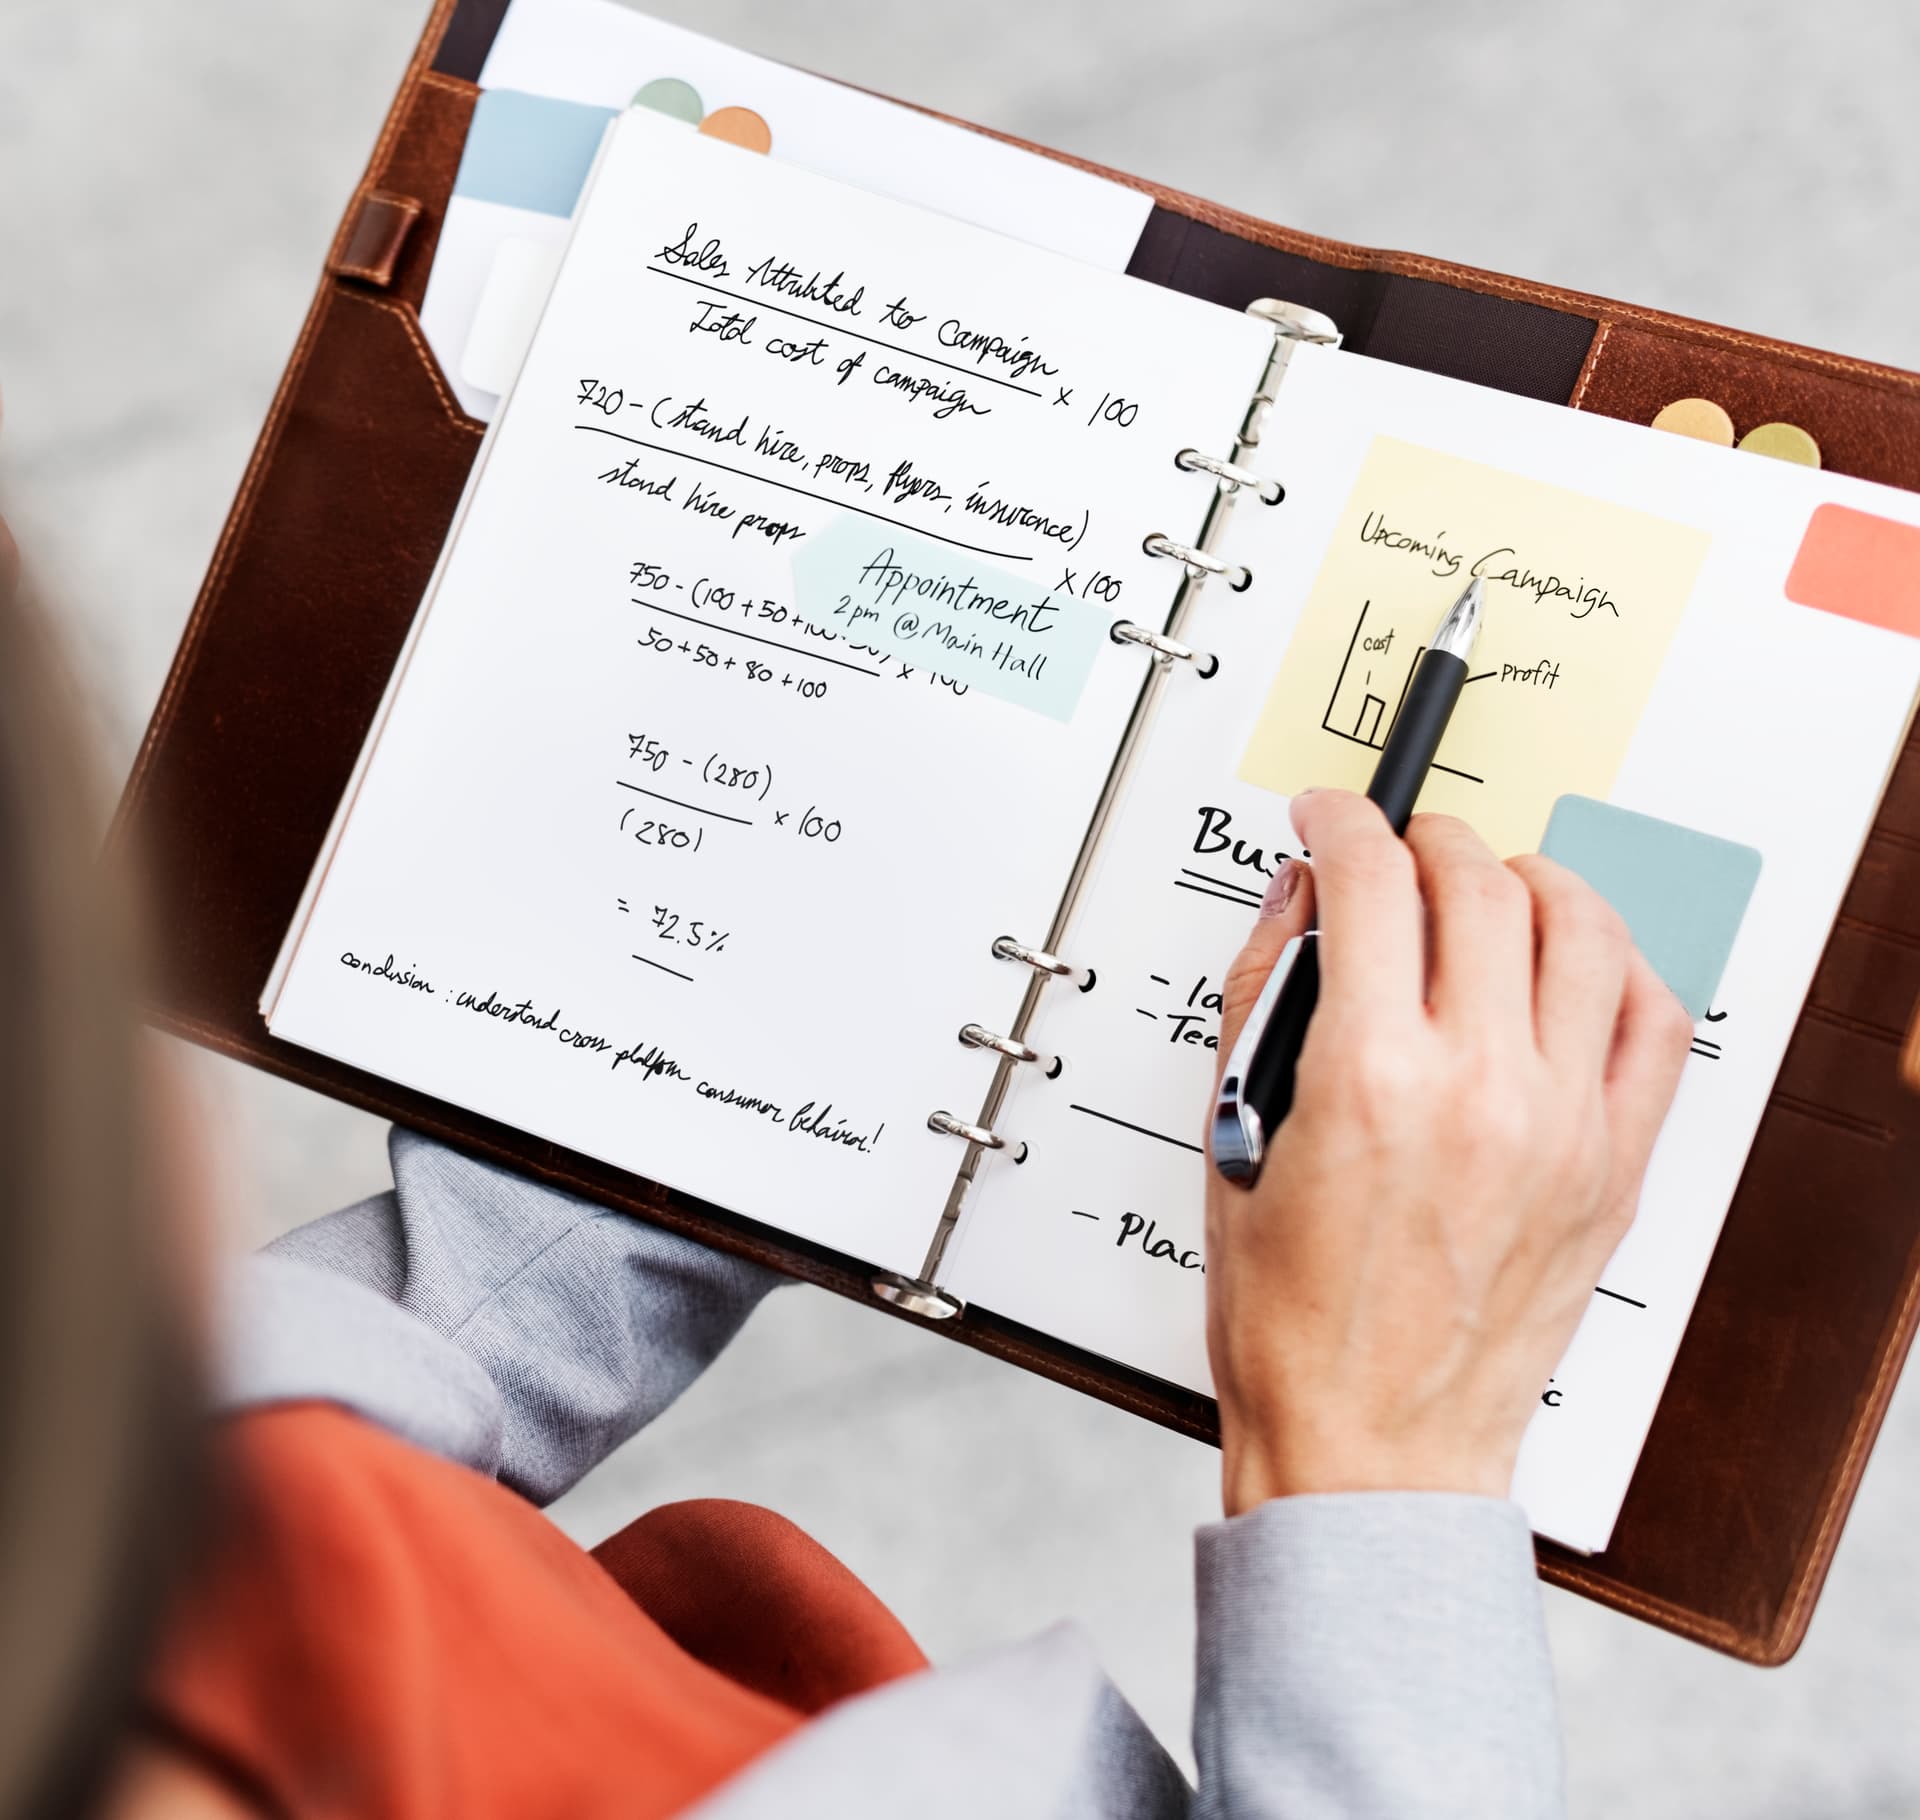 Sales Attributed to Campaign
Total cost of campaign
x 100
720 - (stand hire, props, flyers, insurance)
stand hire props
x 100
Appointment
2 pm @ Main Hall
750 - (100 + 50 +
50 + 50 + 80 + 100
x 100
750 - (280)
(280)
x 100
= 72.5%
conclusion : understand cross platform consumer behavior!
Upcoming Campaign
cost
profit
Busi
- Plac